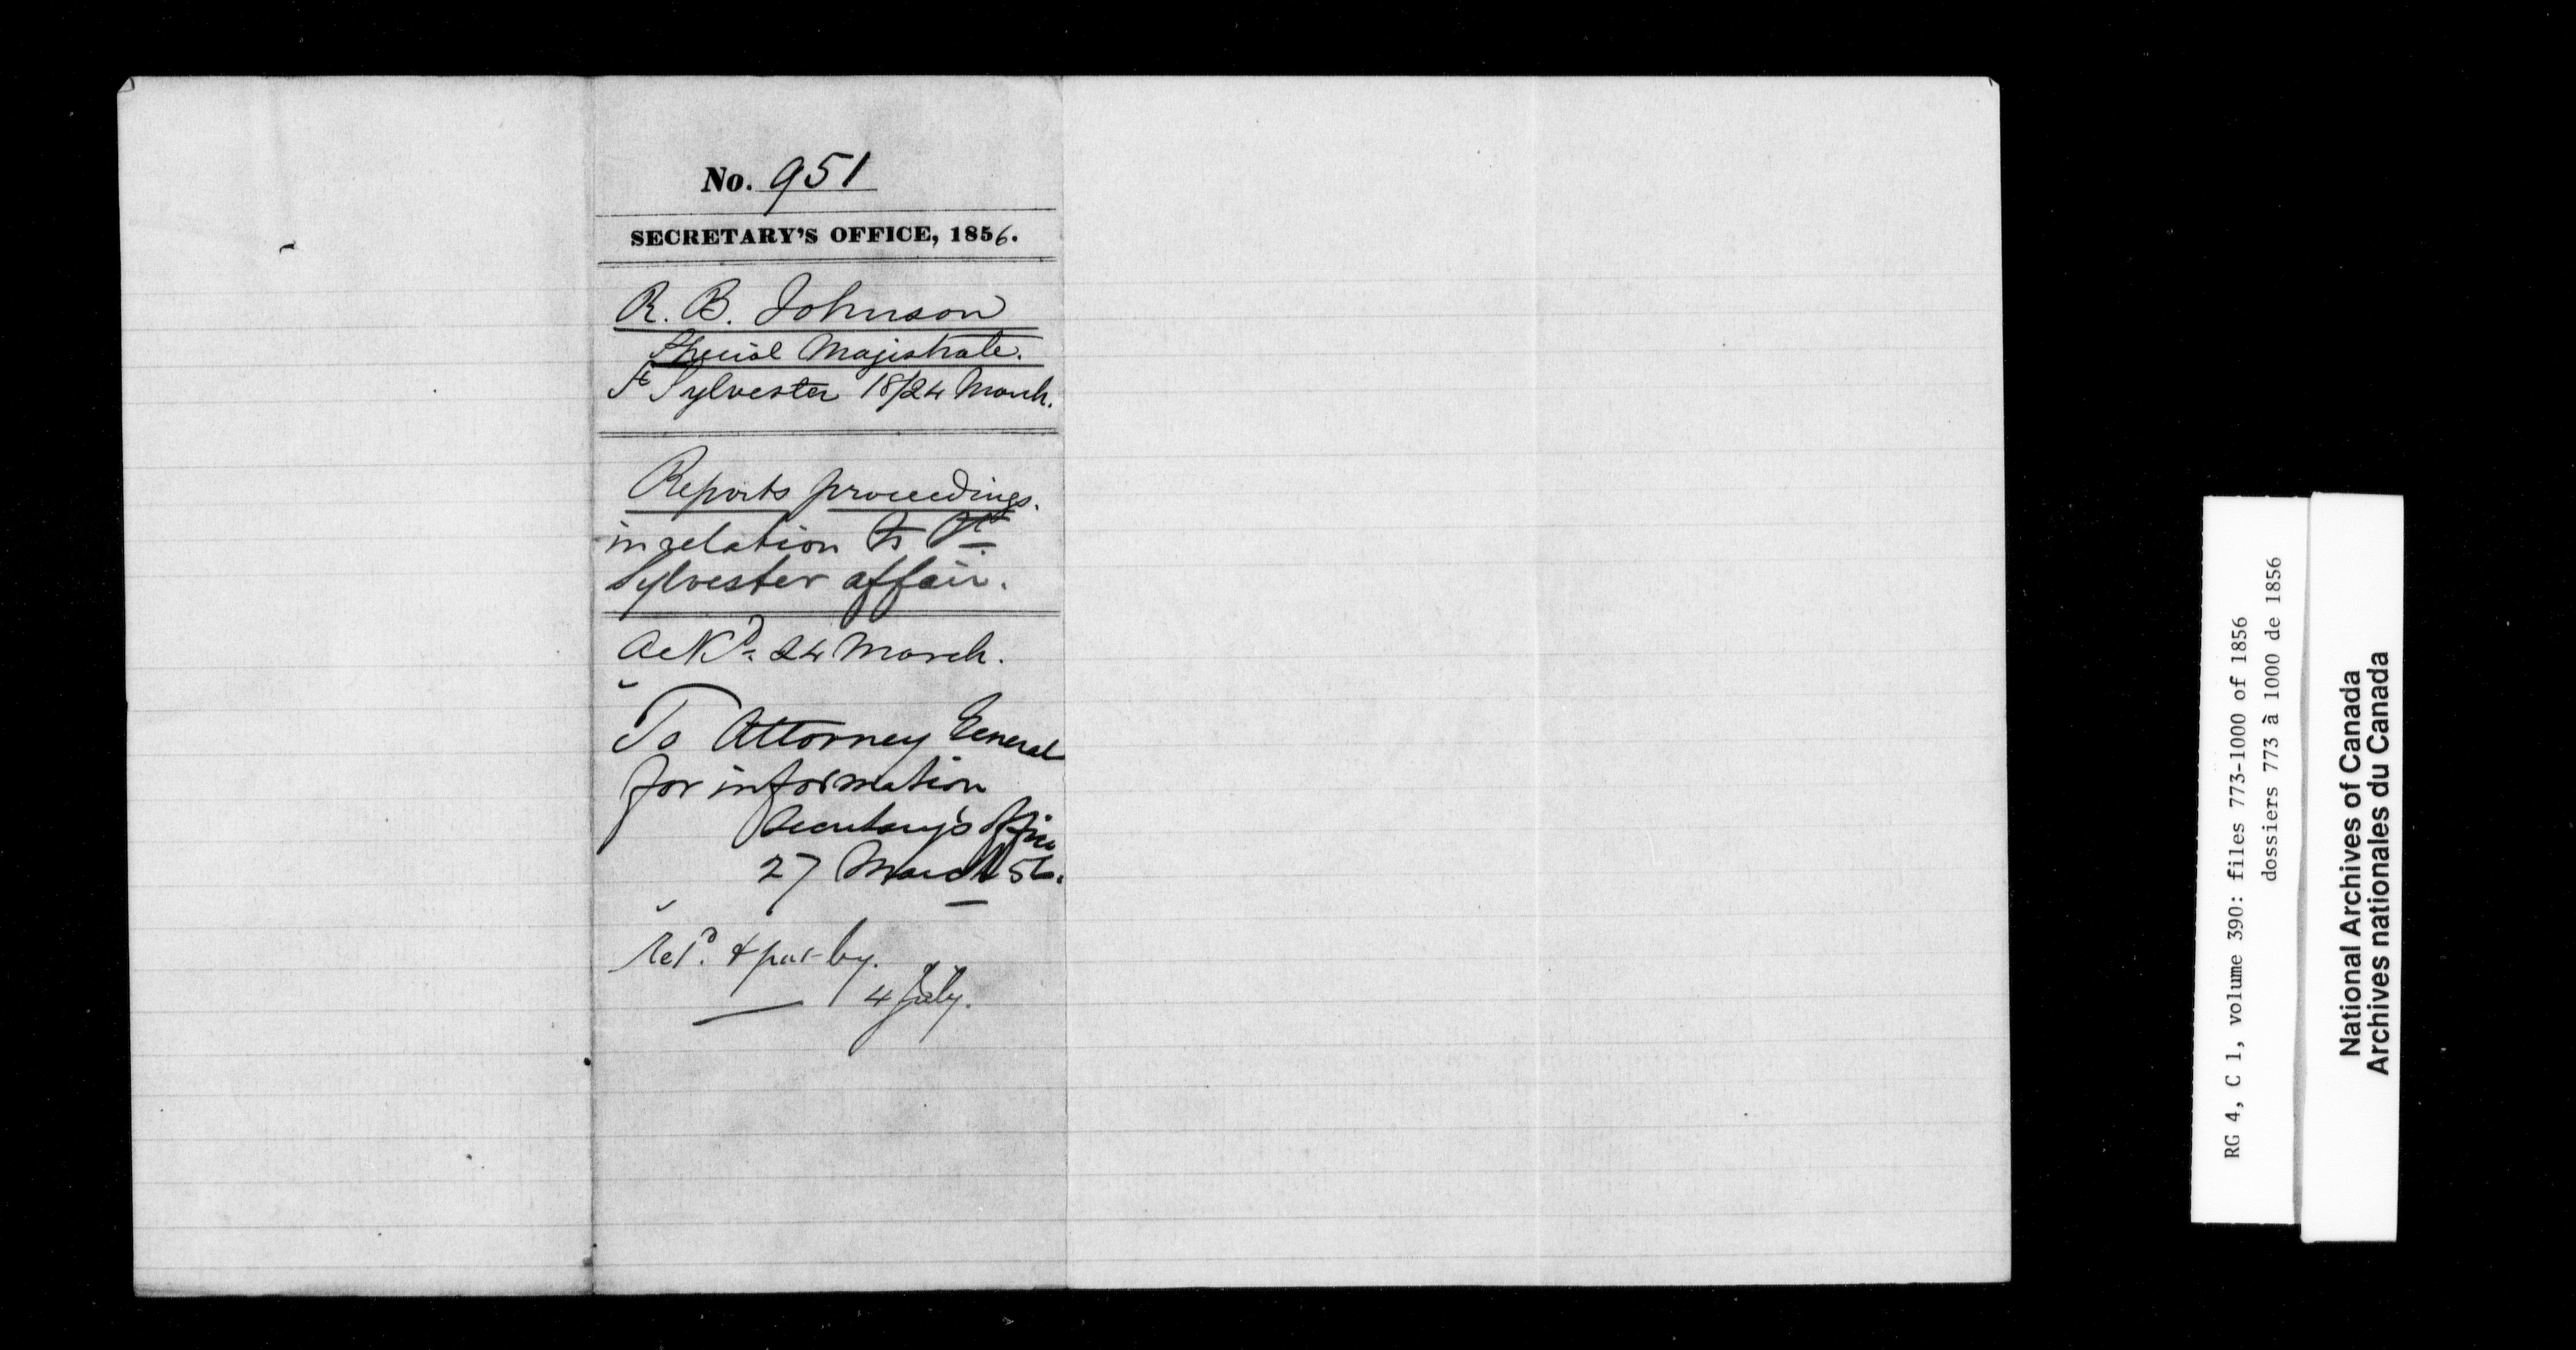 No. 951
SECRETARY'S OFFICE, 1856.
R. B. Johnson
Special Magistrate.
St Sylvester 18/24 March.
Reports proceedings.
in relation to St
Sylvester affair.
Ackd. 24 March.
To Attorney General
for information
Secretary's Office
27 March 56.
Retd. & put by.
4 July.
RG 4, C 1, volume 390: files 773-1000 of 1856
dossiers 773 à 1000 de 1856
National Archives of Canada
Archives nationales du Canada